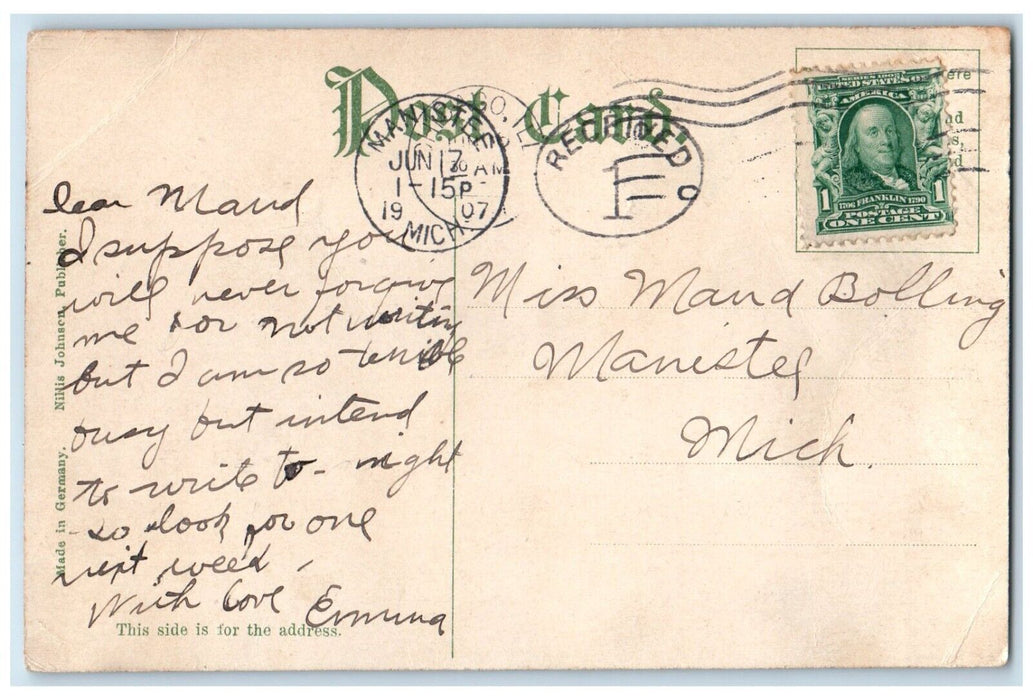 Post Card.
MANISTEE
JUN 17
1-15P
19 07
MICH.
30 AM
RECEIVED
1
SERIES 1902
UNITED STATES OF
AMERICA
1706 FRANKLIN 1790
POSTAGE
1 ONE CENT 1
ere
nd
s,
d
Dear Maud
I suppose you
will never forgive
me for not writing
but I am so terrible
busy but intend
to write to-night
so look for one
next weed.
With love Emma
Miss Maud Bolling
Manistee
Mich.
Made in Germany. Nillis Johnson, Publisher.
This side is for the address.